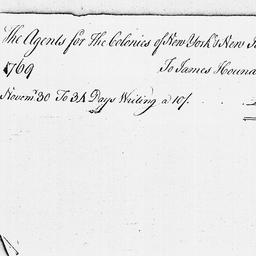 The Agents for The Colonies of New York & New
1769 To James
Novemr 30 To 34 Days Writing a 10/.